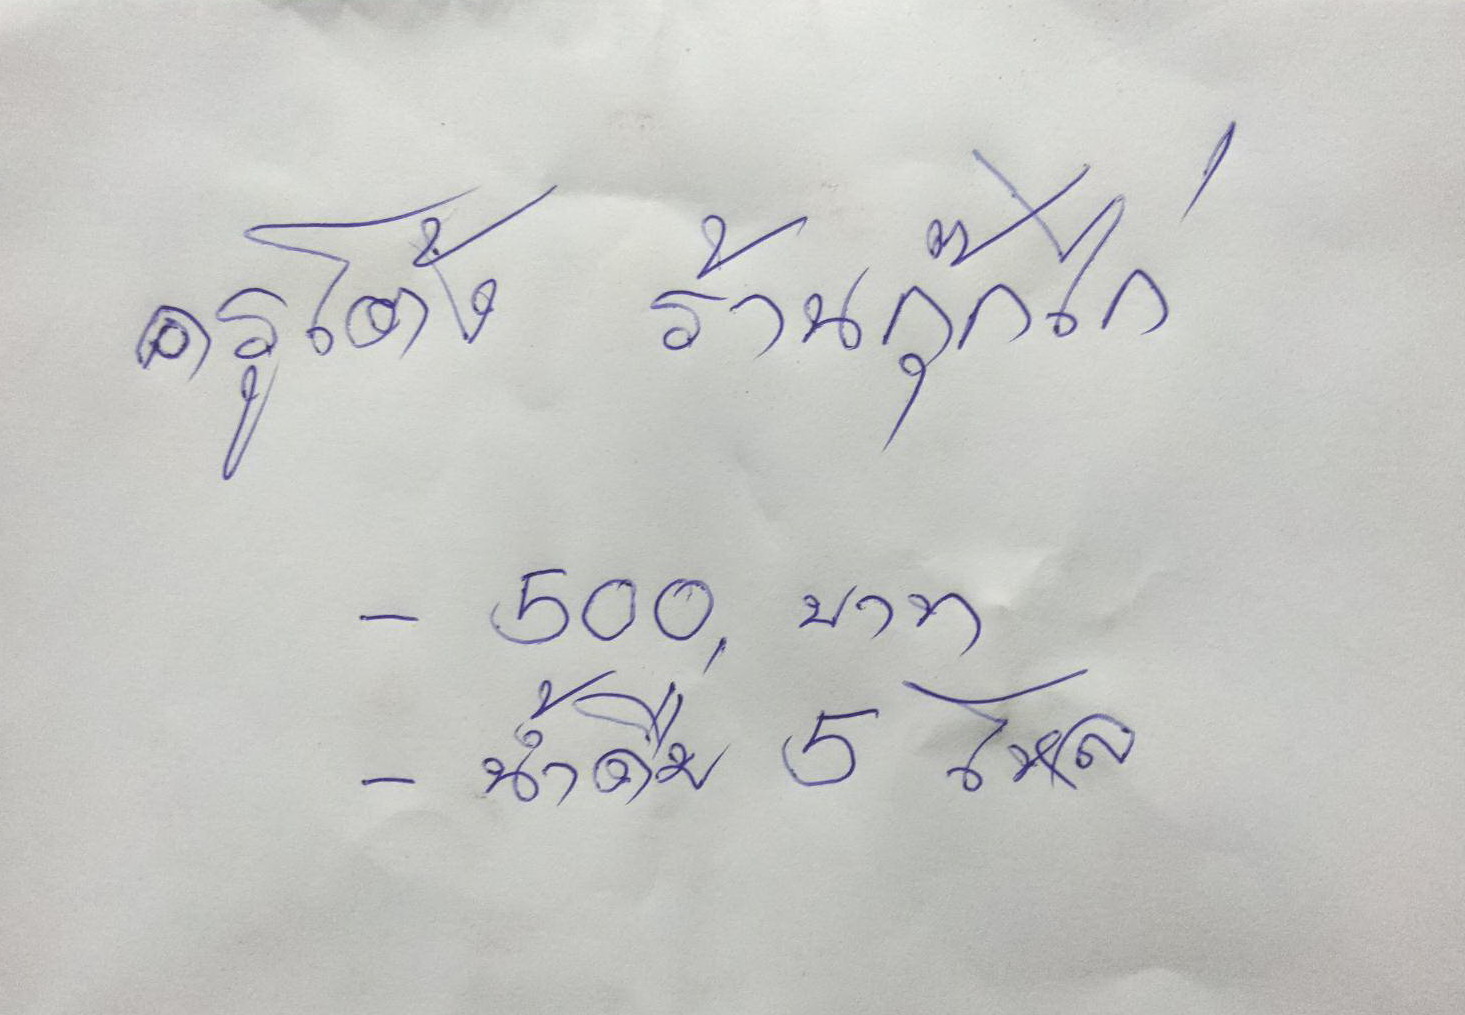 ครูโต้ง ร้านกุ๊กไก่
- 500, บาท
- น้ำดื่ม 5 โหล